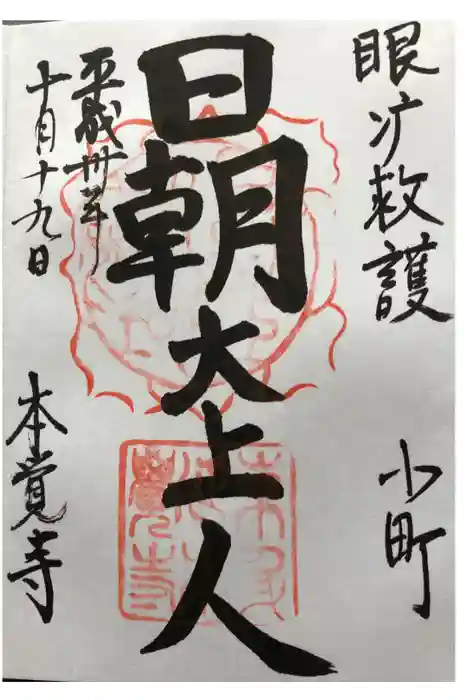 眼疒救護
小町
日朝大上人
平成卅年
十月十九日
本覚寺